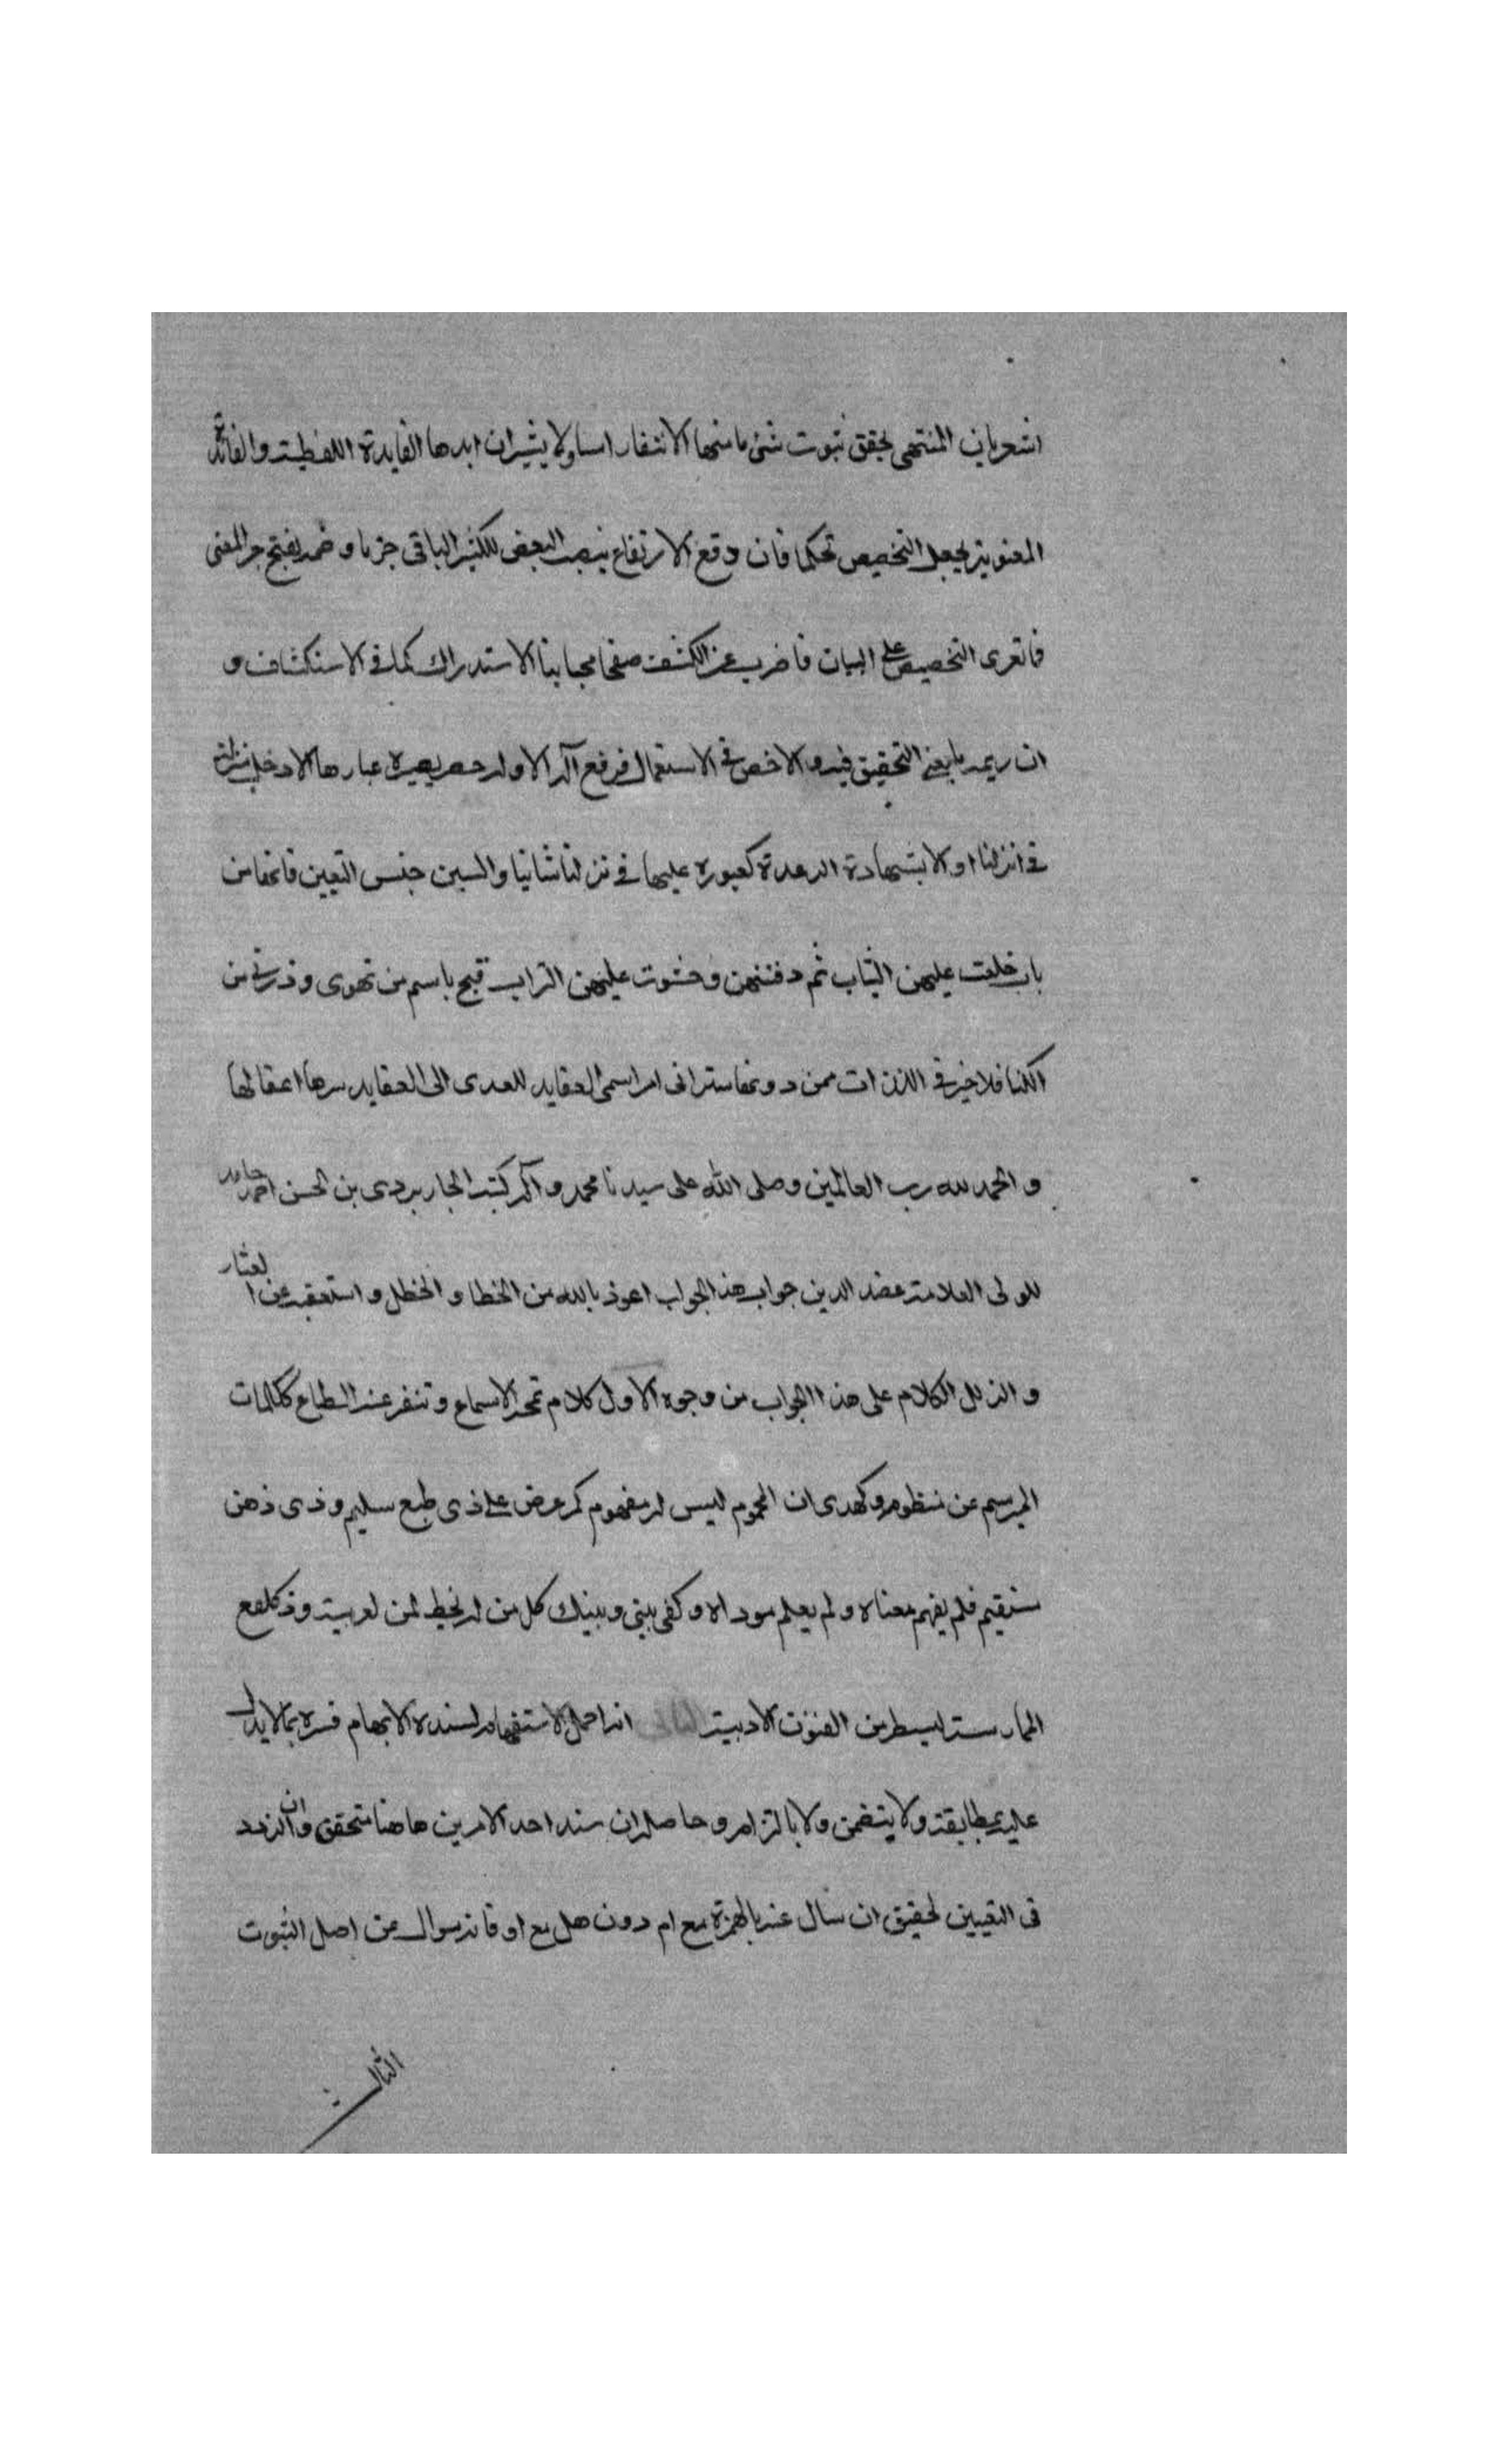 اشعر بان المنتهى تحقق ثبوت شئ ما منها الانتفار اساولا يشير ان ابدها الفايدة اللفظية والفائدة
المعنوية يجعل التخصيص تحكما فان وقع الارتفاع بنصب البعض للكثير الباقى جزما وضمه يفتح جر المعنى
فا تعرى التخصيص على البيان فاضرب عن الكشف صفحا مجابنا الاستدراك كما فى الاستكشاف و
ان يريد ما بعنى التحقيق فيه والاخص فى الاستعمال فرفع الاول عبارها الادخل
فى انزلنا اولا بشهادة الدعدة كعبوره عليها فى نزلنا ثانيا والسين جنس التعين فانها من
باب خلعت عليهن الثياب ثم دفنتهن وحثوت عليهن التراب قبح باسم من تهوى وذرنى من
الكنا فلا خير فى اللذات من دونها ستر انى امر اسمى العقايد للهدى الى العقايد سرها اعقالها
و الحمد لله رب العالمين وصلى الله على سيدنا محمد و آله كتبه الجاربردى بن الحسن احمد حامد
للمولى العلامة عضد الدين جواب هذا الجواب اعوذ بالله من الخطا و الخطل و استعفيه من العثار
و الزلل الكلام على هذا الجواب من وجوه الاول كلام تمجه الاسماع و تنفر عنه الطباع ككلمات
المبرسم عن منظوم و كهدى ان المحموم ليس له مفهوم كم عرض على ذى طبع سليم و ذى ذهن
مستقيم فلم يفهم معناه و لم يعلم موداه و كفى بينى و بينك كل من له حظ من لعربية و ذ كل مع
الممارسة لسطر من الفنون الادبية الثانى انه احمل الاستفهام لسنده الابهام فسره بما لا يدل
عليه بمطابقة ولا يتضمن ولا بالتزام و حاصله ان سند احد الامرين هاهنا متحقق وان التردد
فى التعيين لحقيق ان سال عنه بالهمزة مع ام دون هل مع او فانه سوال عن اصل الثبوت
الثالث